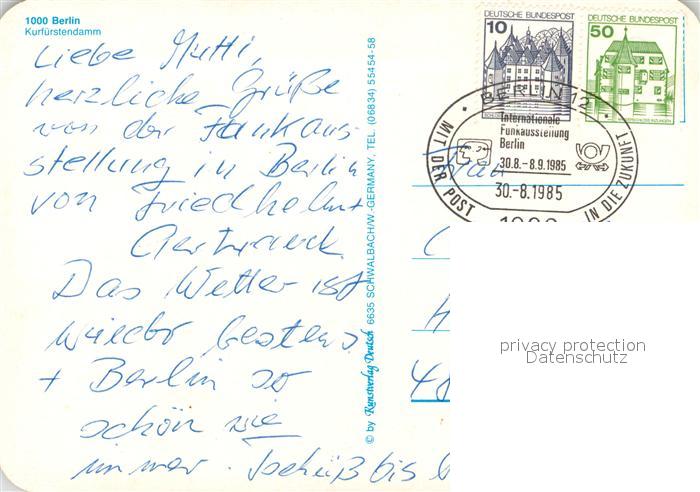 1000 Berlin
Kurfürstendamm
Liebe Mutti,
herzliche Grüße
von der Funkaus-
stellung in Berlin
von Friedhelm +
Das Wetter ist
wieder bestens
+ Berlin so
schön wie
immer. Tschüß bis
© by Kunstverlag Deutsch 6635 SCHWALBACH/W.-GERMANY, TEL. (06834) 55454-58
10 DEUTSCHE BUNDESPOST
50 DEUTSCHE BUNDESPOST
BERLIN 12
Internationale
Funkausstellung
Berlin
30.8.-8.9.1985
30.-8.1985
1000
MIT DER POST IN DIE ZUKUNFT
Frau
privacy protection
Datenschutz